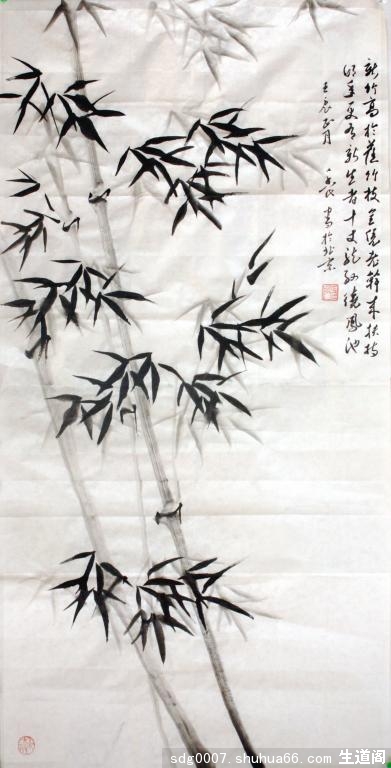 新竹高於舊竹枝全憑老幹來扶持
明年更有新生者十丈龍孫繞鳳池
壬辰正月
書於北京
sdg0007.shuhua66.com 生道阁